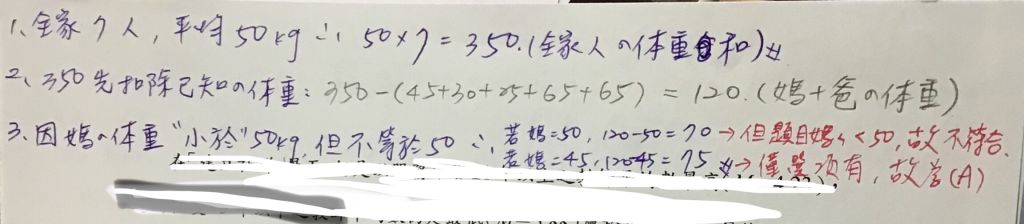 1、全家7人，平均50kg ∴ 50×7=350.(全家人の体重和)
2、350先扣除已知の体重：350-(45+30+25+65+65)=120.(媽+爸の体重)
3、因媽の体重"小於"50kg，但不等於50 ∴ 若媽=50，120-50=70→但題目媽<50，故不符合.
若媽=45，120-45=75→僅選項有，故答(A)